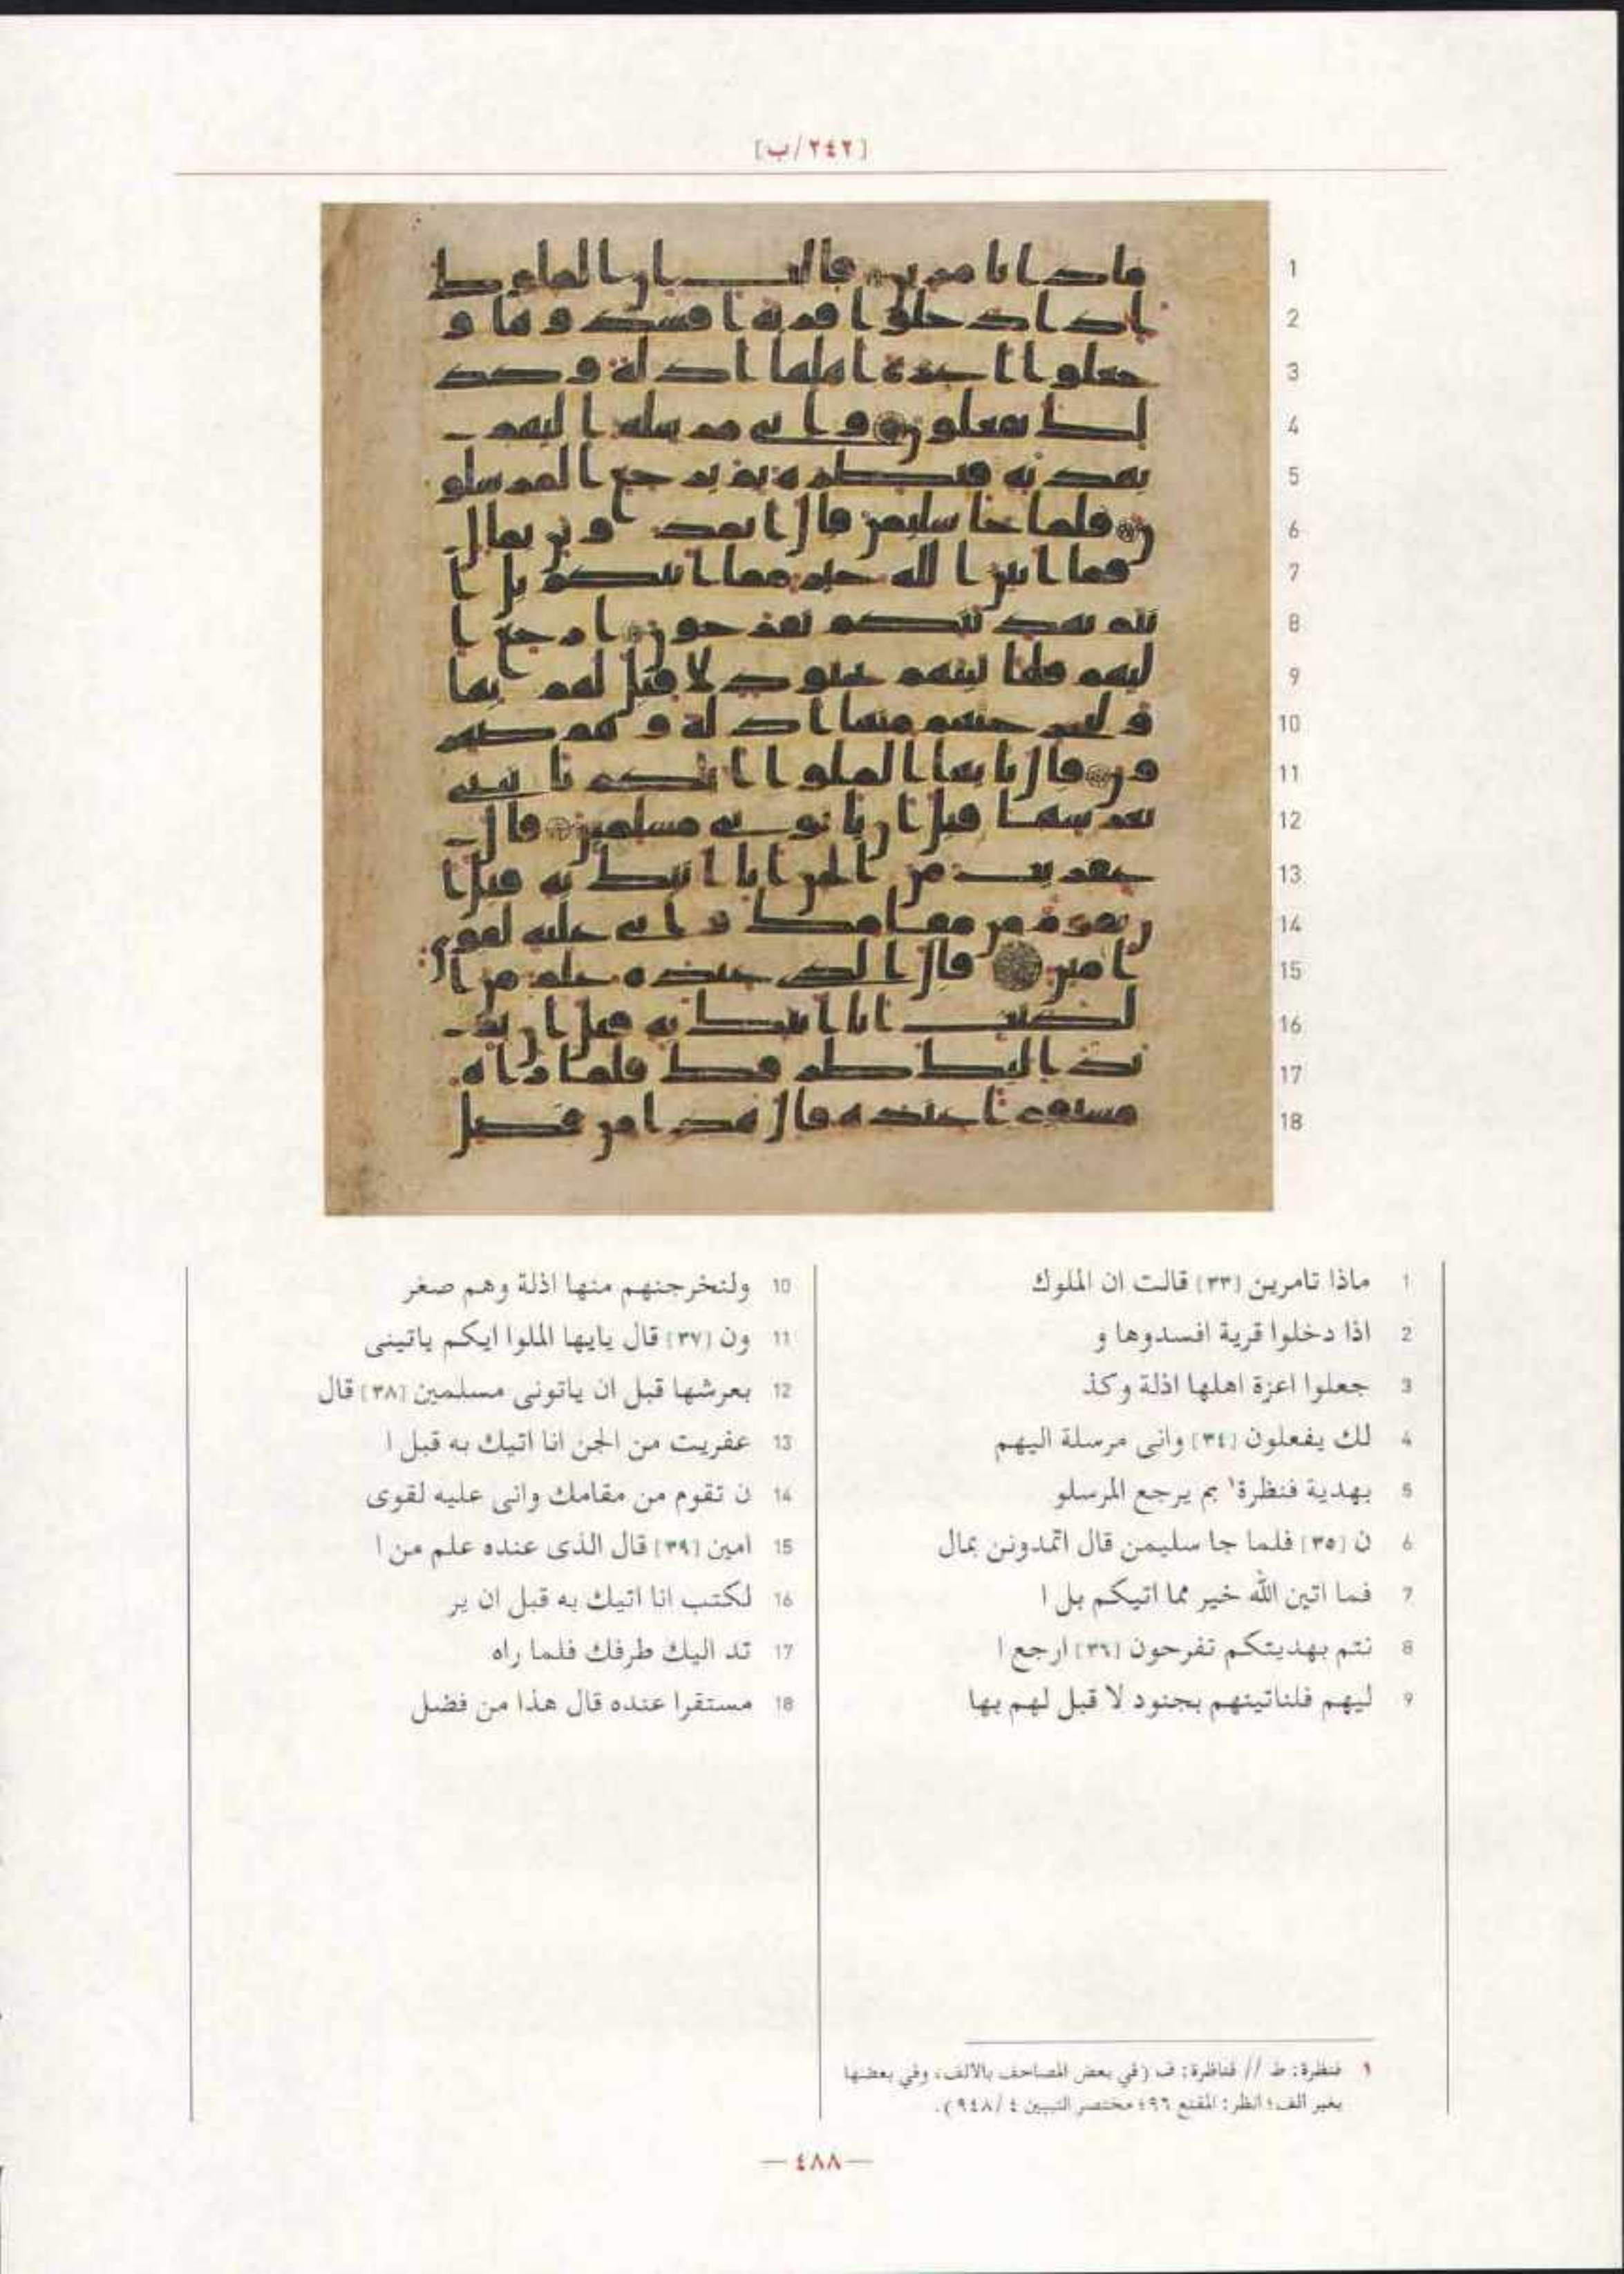 [٢٤٢/ب]
1
2
3
4
5
6
7
8
9
10
11
12
13
14
15
16
17
18
1 ماذا تامرين [٣٣] قالت ان الملوك
2 اذا دخلوا قرية افسدوها و
3 جعلوا اعزة اهلها اذلة وكذ
4 لك يفعلون [٣٤] وانى مرسلة اليهم
5 بهدية فنظرة١ بم يرجع المرسلو
6 ن [٣٥] فلما جا سليمن قال اتمدونن بمال
7 فما اتين الله خير مما اتيكم بل ا
8 نتم بهديتكم تفرحون [٣٦] ارجع ا
9 ليهم فلناتينهم بجنود لا قبل لهم بها
10 ولنخرجنهم منها اذلة وهم صغر
11 ون [٣٧] قال يايها الملوا ايكم ياتينى
12 بعرشها قبل ان ياتونى مسلمين [٣٨] قال
13 عفريت من الجن انا اتيك به قبل ا
14 ن تقوم من مقامك وانى عليه لقوى
15 امين [٣٩] قال الذى عنده علم من ا
16 لكتب انا اتيك به قبل ان ير
17 تد اليك طرفك فلما راه
18 مستقرا عنده قال هذا من فضل
١ فنظرة: ط // فناظرة: ف (في بعض المصاحف بالالف، وفي بعضها
بغير الف؛ انظر: المقنع ٩٦؛ مختصر التبيين ٤/٩٤٨).
— ٤٨٨ —